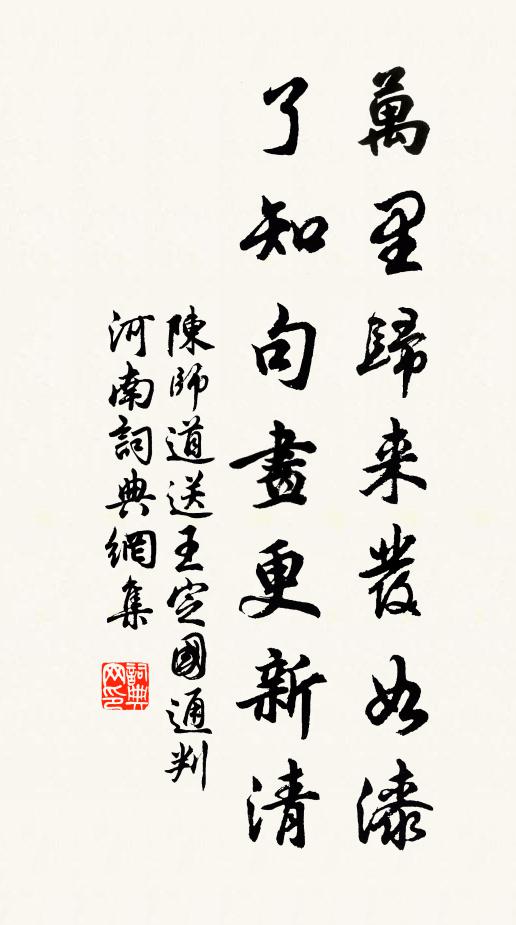 萬里歸来發如漆
了知句畫更新清
陳師道送王定國通判
河南詞典網集
詞典網印